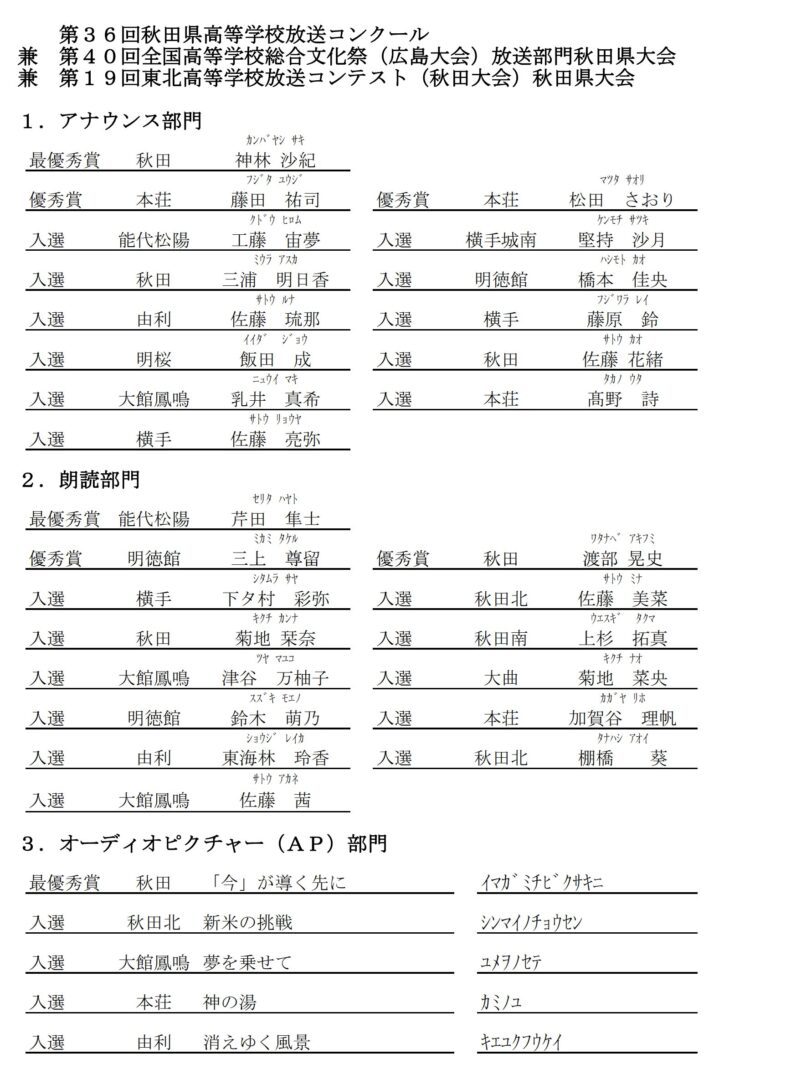 第３６回秋田県高等学校放送コンクール
兼　第４０回全国高等学校総合文化祭（広島大会）放送部門秋田県大会
兼　第１９回東北高等学校放送コンテスト（秋田大会）秋田県大会
１．アナウンス部門
ｶﾝﾊﾞﾔｼ ｻｷ
最優秀賞　秋田　神林 沙紀
ﾌｼﾞﾀ ﾕｳｼﾞ　ﾏﾂﾀ ｻｵﾘ
優秀賞　本荘　藤田　祐司　優秀賞　本荘　松田　さおり
ｸﾄﾞｳ ﾋﾛﾑ　ｹﾝﾓﾁ ｻﾂｷ
入選　能代松陽　工藤　宙夢　入選　横手城南　堅持　沙月
ﾐｳﾗ ｱｽｶ　ﾊｼﾓﾄ ｶｵ
入選　秋田　三浦　明日香　入選　明徳館　橋本　佳央
ｻﾄｳ ﾙﾅ　ﾌｼﾞﾜﾗ ﾚｲ
入選　由利　佐藤　琉那　入選　横手　藤原　鈴
ｲｲﾀﾞ　ｼﾞｮｳ　ｻﾄｳ ｶｵ
入選　明桜　飯田　成　入選　秋田　佐藤 花緒
ﾆｭｳｲ ﾏｷ　ﾀｶﾉ ｳﾀ
入選　大館鳳鳴　乳井　真希　入選　本荘　髙野　詩
ｻﾄｳ ﾘｮｳﾔ
入選　横手　佐藤　亮弥
２．朗読部門
ｾﾘﾀ ﾊﾔﾄ
最優秀賞　能代松陽　芹田　隼士
ﾐｶﾐ ﾀｹﾙ　ﾜﾀﾅﾍﾞ ｱｷﾌﾐ
優秀賞　明徳館　三上　尊留　優秀賞　秋田　渡部 晃史
ｼﾀﾑﾗ ｻﾔ　ｻﾄｳ ﾐﾅ
入選　横手　下タ村　彩弥　入選　秋田北　佐藤　美菜
ｷｸﾁ ｶﾝﾅ　ｳｴｽｷﾞ　ﾀｸﾏ
入選　秋田　菊地 栞奈　入選　秋田南　上杉　拓真
ﾂﾔ ﾏﾕｺ　ｷｸﾁ ﾅｵ
入選　大館鳳鳴　津谷　万柚子　入選　大曲　菊地　菜央
ｽｽﾞｷ ﾓｴﾉ　ｶｶﾞﾔ ﾘﾎ
入選　明徳館　鈴木　萌乃　入選　本荘　加賀谷　理帆
ｼｮｳｼﾞ ﾚｲｶ　ﾀﾅﾊｼ ｱｵｲ
入選　由利　東海林　玲香　入選　秋田北　棚橋　葵
ｻﾄｳ ｱｶﾈ
入選　大館鳳鳴　佐藤　茜
３．オーディオピクチャー（ＡＰ）部門
最優秀賞　秋田　「今」が導く先に　ｲﾏｶﾞﾐﾁﾋﾞｸｻｷﾆ
入選　秋田北　新米の挑戦　ｼﾝﾏｲﾉﾁｮｳｾﾝ
入選　大館鳳鳴　夢を乗せて　ﾕﾒｦﾉｾﾃ
入選　本荘　神の湯　ｶﾐﾉﾕ
入選　由利　消えゆく風景　ｷｴﾕｸﾌｳｹｲ